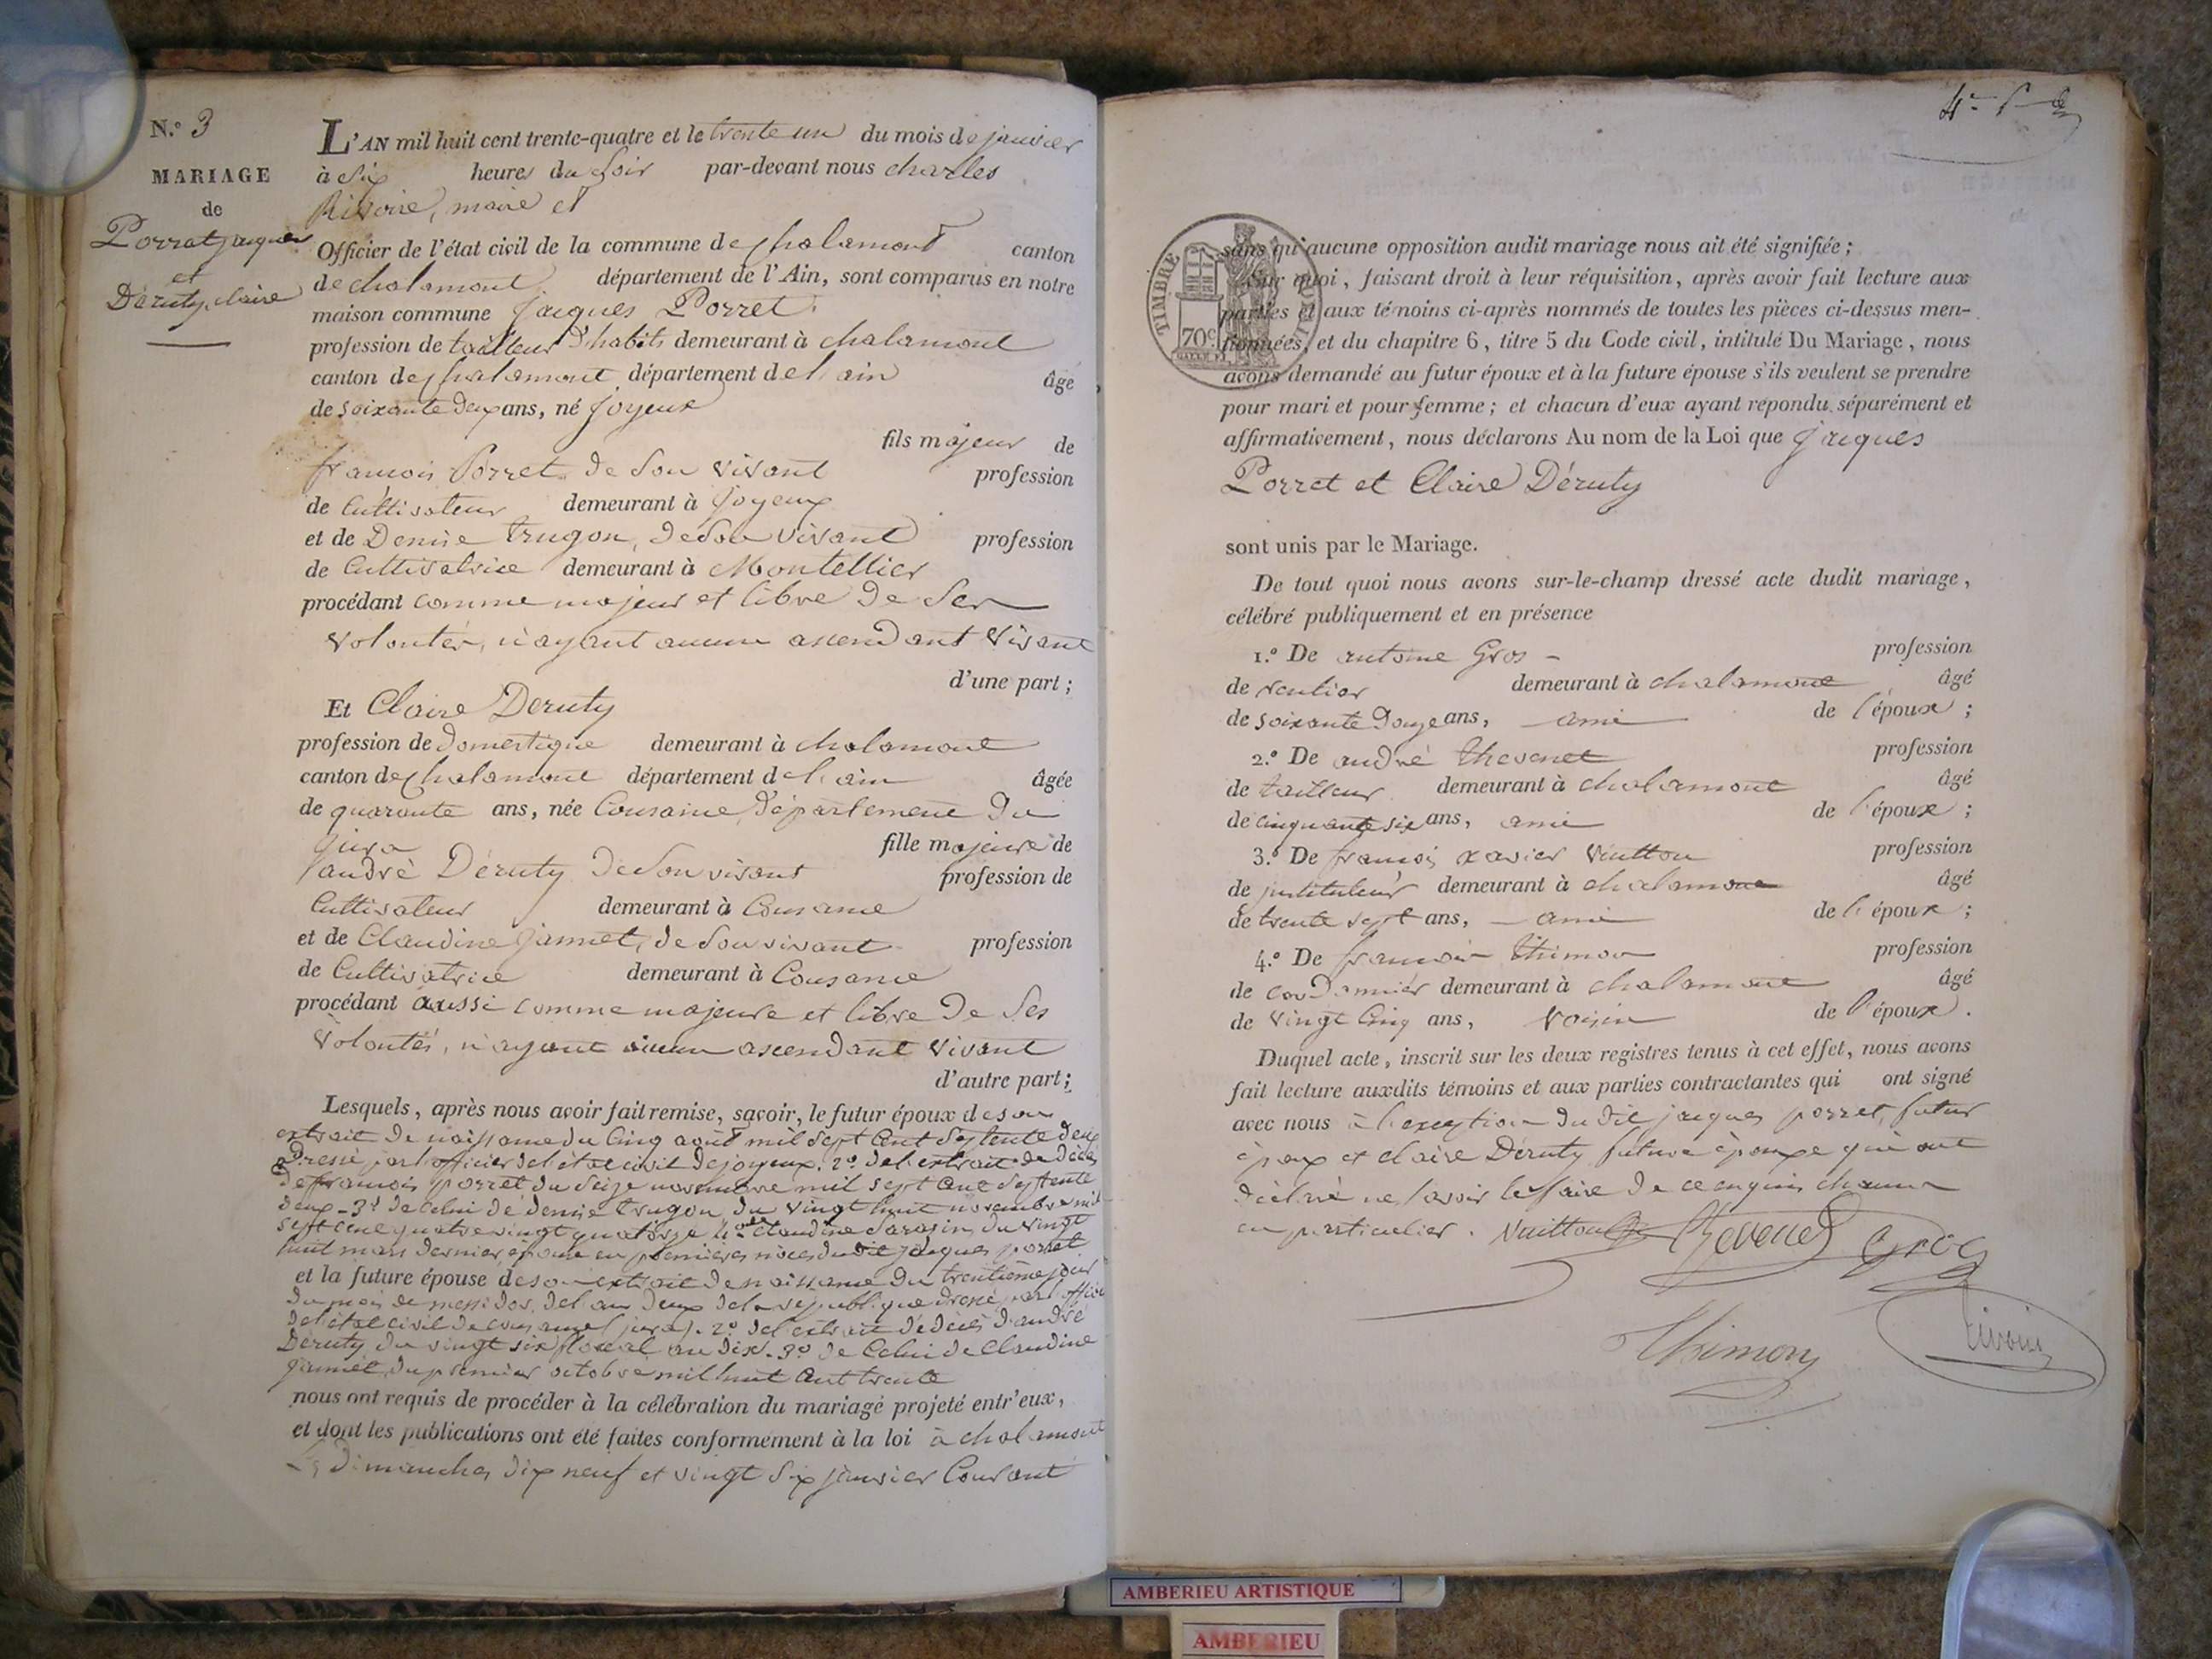 N.° 3
MARIAGE
de
Porrat jacques
et
Déruty claire
L'AN mil huit cent trente-quatre et le trente un du mois de janvier
à six heures du soir par-devant nous charles
Rivoire, maire et
Officier de l'état civil de la commune de chalamont canton
de chalamont département de l'Ain, sont comparus en notre
maison commune Jacques Porret
profession de tailleur d'habits demeurant à chalamont
canton de chalamont département de l'ain âgé
de soixante deux ans, né Joyeux
fils majeur de
francois Porret de son vivant profession
de Cultivateur demeurant à Joyeux
et de Denise trugon, de son vivant profession
de Cultivatrice demeurant à Montellier
procédant comme majeur et libre de ses
volontés, n'ayant aucun ascendant vivant
d'une part ;
Et Claire Deruty
profession de domestique demeurant à chalamont
canton de chalamont département de l'ain âgée
de quarante ans, née Cousance, département du
jura fille majeure de
andré Déruty de son vivant profession de
Cultivateur demeurant à Cousance
et de Claudine jannet, de son vivant profession
de Cultivatrice demeurant à Cousance
procédant aussi comme majeure et libre de ses
volontés, n'ayant aucun ascendant vivant
d'autre part ;
Lesquels, après nous avoir fait remise, savoir, le futur époux de son
extrait de naissance du cinq août mil sept cent septente deux
Dressé par l'officier de l'état civil de joyeux. 2.° de l'extrait de décès
de francois porret du seize novembre mil sept cent septente
deux - 3.° de celui de denise trugon du vingt huit novembre mil
sept cent quatre vingt quatorze 4.° de Claudine Sarasin du vingt
huit mars dernier épouse en premières noces dudit jacques porret
et la future épouse de son extrait de naissance du trentième jour
du mois de messidor, de l'an deux de la république dressé par l'officier
de l'état civil de cousance (jura). 2.° de l'extrait de décès d'andré
Déruty, du vingt six floréal an dix. 3.° de Celui de Claudine
jannet, du premier octobre mil huit cent trente
nous ont requis de procéder à la célébration du mariage projeté entr'eux,
et dont les publications ont été faites conformément à la loi à chalamont
les dimanches dix neuf et vingt six janvier Courant
sans qu'aucune opposition audit mariage nous ait été signifiée ;
Sur quoi, faisant droit à leur réquisition, après avoir fait lecture aux
parties et aux témoins ci-après nommés de toutes les pièces ci-dessus men-
tionnées, et du chapitre 6, titre 5 du Code civil, intitulé Du Mariage, nous
avons demandé au futur époux et à la future épouse s'ils veulent se prendre
pour mari et pour femme ; et chacun d'eux ayant répondu séparément et
affirmativement, nous déclarons Au nom de la Loi que Jacques
Porret et Claire Déruty
sont unis par le Mariage.
De tout quoi nous avons sur-le-champ dressé acte dudit mariage,
célébré publiquement et en présence
1.° De antoine Gros - profession
de rentier demeurant à chalamont âgé
de soixante douze ans, ami de l'époux ;
2.° De andré thevenet profession
de tailleur demeurant à chalamont âgé
de cinquante six ans, ami de l'époux ;
3.° De francois xavier Vuitton profession
de instituteur demeurant à chalamont âgé
de trente sept ans, ami de l'époux ;
4.° De francois thimon profession
de cordonnier demeurant à chalamont âgé
de vingt cinq ans, voisin de l'époux.
Duquel acte, inscrit sur les deux registres tenus à cet effet, nous avons
fait lecture auxdits témoins et aux parties contractantes qui ont signé
avec nous à l'exception du dit jacques porret, futur
époux et claire Déruty future épouse qui ont
déclaré ne savoir le faire de ce enquis chacun
en particulier. Vuitton Thevenet Gros
Thimon Rivoire
TIMBRE ROYAL
70c
AMBERIEU ARTISTIQUE
AMBERIEU